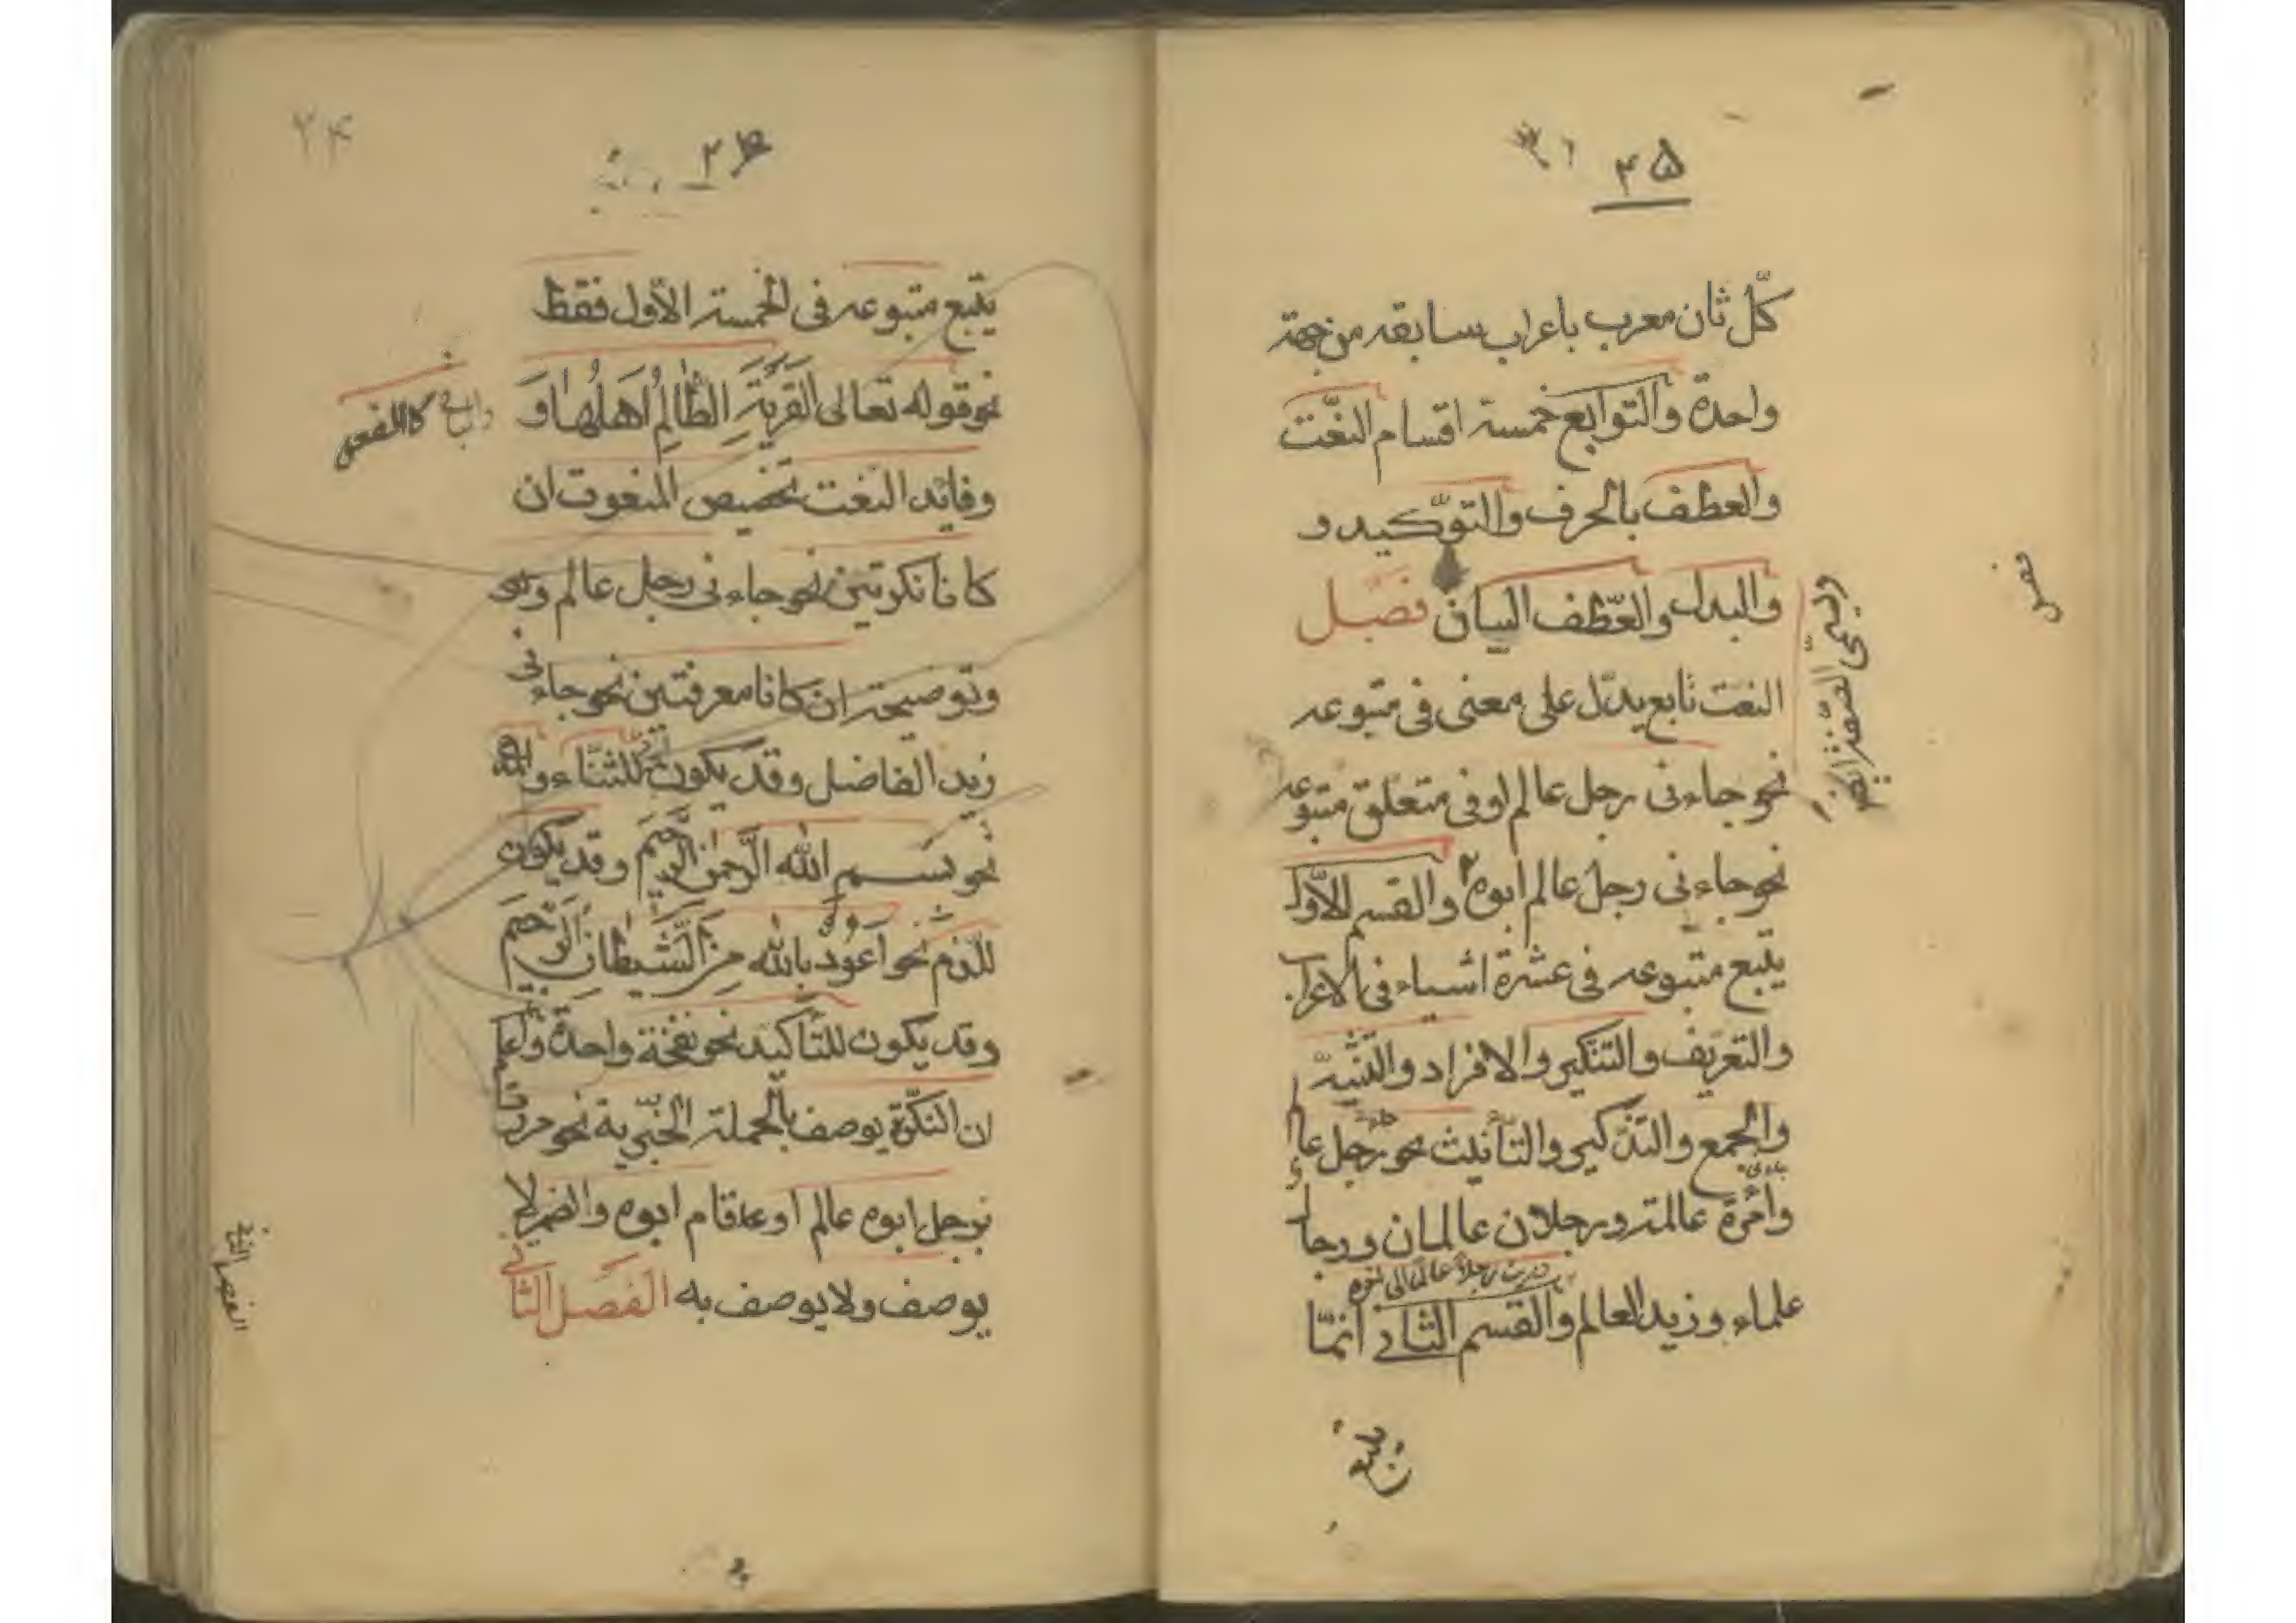 ۳۵
كلّ ثان معرب باعراب سابقه من جهة
واحدة والتوابع خمسة اقسام النعت
والعطف بالحرف والتوّكيد و
والبدل والعطف البيان فصل
النعت تابع يدلّ على معنى فى متبوعه
نحو جاءنى رجل عالم او فى متعلق متبوعه
نحو جاءنى رجل عالم ابوه والقسم الاوّل
يتبع متبوعه فى عشرة اشياء فى الاعراب
والتعريف والتنكير والافراد والتثنية
والجمع والتذكير والتأنيث نحو رجل عالم
وامرة عالمة ورجلان عالمان ورجال
علماء وزيد العالم والقسم الثانى انّما
يتبع
ويسمّى الصفة ايضا
۲۴
يتبع متبوعه فى الخمسة الأول فقط
نحو قوله تعالى القَريَةِ الظّالِمِ اَهلُها وَ
وفائد النعت تخصيص المنعوت ان
كانا نكرتين نحو جاءنى رجل عالم
وتوضيحه ان كانا معرفتين نحو جاءنى
زيد الفاضل وقد يكون للثّناء و
نحو بسم الله الرّحمن الرّحيم وقد يكون
للذم نحو اعوُذُ بالله مِنَ الشَّيطانِ الرَّجيم
وقد يكون للتأكيد نحو نفخة واحدة واعلم
ان النكرة يوصف بالجملة الخبرية نحو مررت
برجل ابوه عالم او قام ابوه والضمير لا
يوصف ولا يوصف به الفصل الثانى
الفصل الثانى